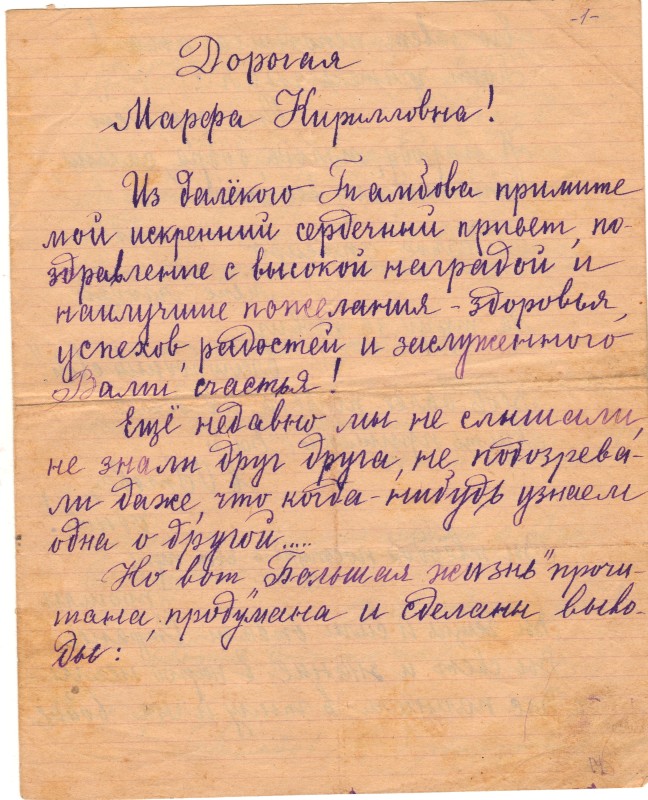 -1-
Дорогая
Марфа Кирилловна!
Из далёкого Тамбова примите
мой искренний сердечный привет, по-
здравление с высокой наградой и
наилучшие пожелания - здоровья,
успехов, радостей и заслуженного
Вами счастья!
Ещё недавно мы не слышали,
не знали друг друга, не подозрева-
ли даже, что когда-нибудь узнаем
одна о другой.....
Но вот "Большая жизнь" прочи-
тана, продумана и сделаны выво-
ды: